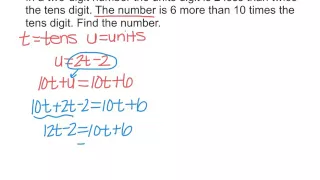 In a two digit number the units digit is 2 less than twice
the tens digit. The number is 6 more than 10 times the
tens digit. Find the number.
t=tens u=units
u=2t-2
10t+u=10t+6
10t+2t-2=10t+6
12t-2=10t+6